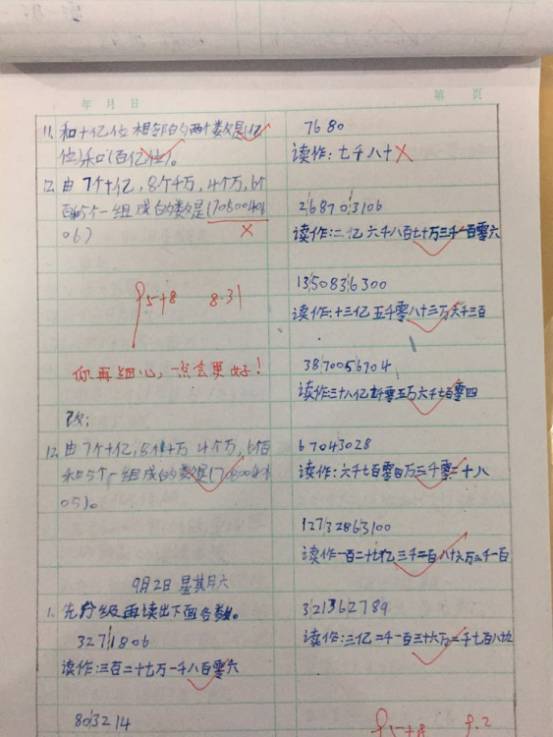 年 月 日
第 页
11、和十亿位相邻的两个数位是(亿
位)和(百亿位)。
12、由7个十亿,8个千万,4个万,6个
百和5个一组成的数是(
06)
P5+8 8.31
你再细心一点会更好!
改:
12、由7个十亿, 4个万,6个百
和5个一组成的数是(
05)。
9月2日 星期六
1、先分级再读出下面各数。
3271806
读作:三百二十七万一千八百零六
803214
7680
读作:七千八十
268703106
读作:二亿六千八百七十万三千一百零六
1350836300
读作:十三亿五千零八十三万六千三百
3870056704
读作:三十八亿七千零五万六千七百零四
67043028
读作:六千七百零四万三千零二十八
12732863100
读作一百二十七亿三千二百八十六万三千一百
321362789
读作:三亿二千一百三十六万二千七百八十九
P5+8 9.2